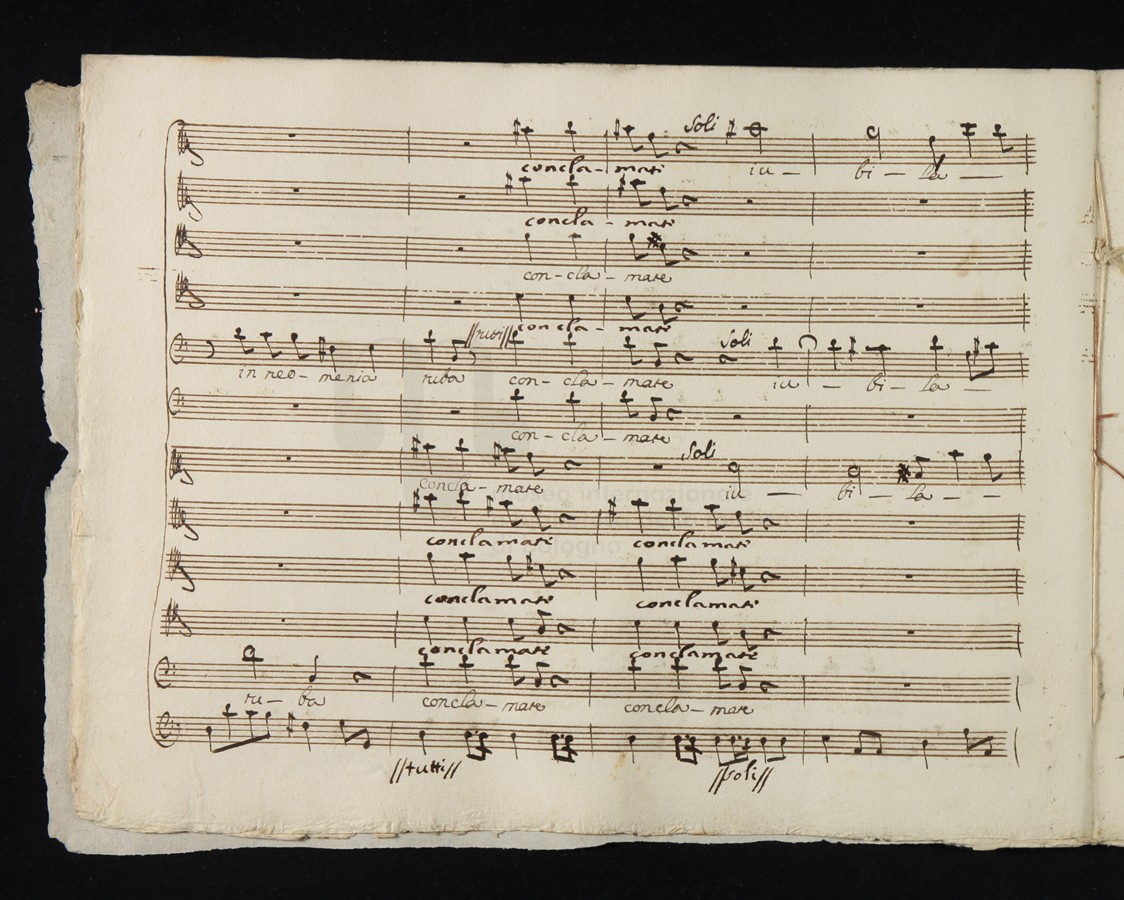 Soli
concla - mate iu - bi - la -
concla - mate
con - cla - mate
concla - mate
tutti Soli
in neo - menia tuba con - cla - mate iu - bi - la -
con - cla - mate
Soli
Concla - mate iu - bi - la - -
conclamate conclamate
conclamate conclamate
conclamate conclamate
tu - ba concla - mate concla - mate
tutti soli